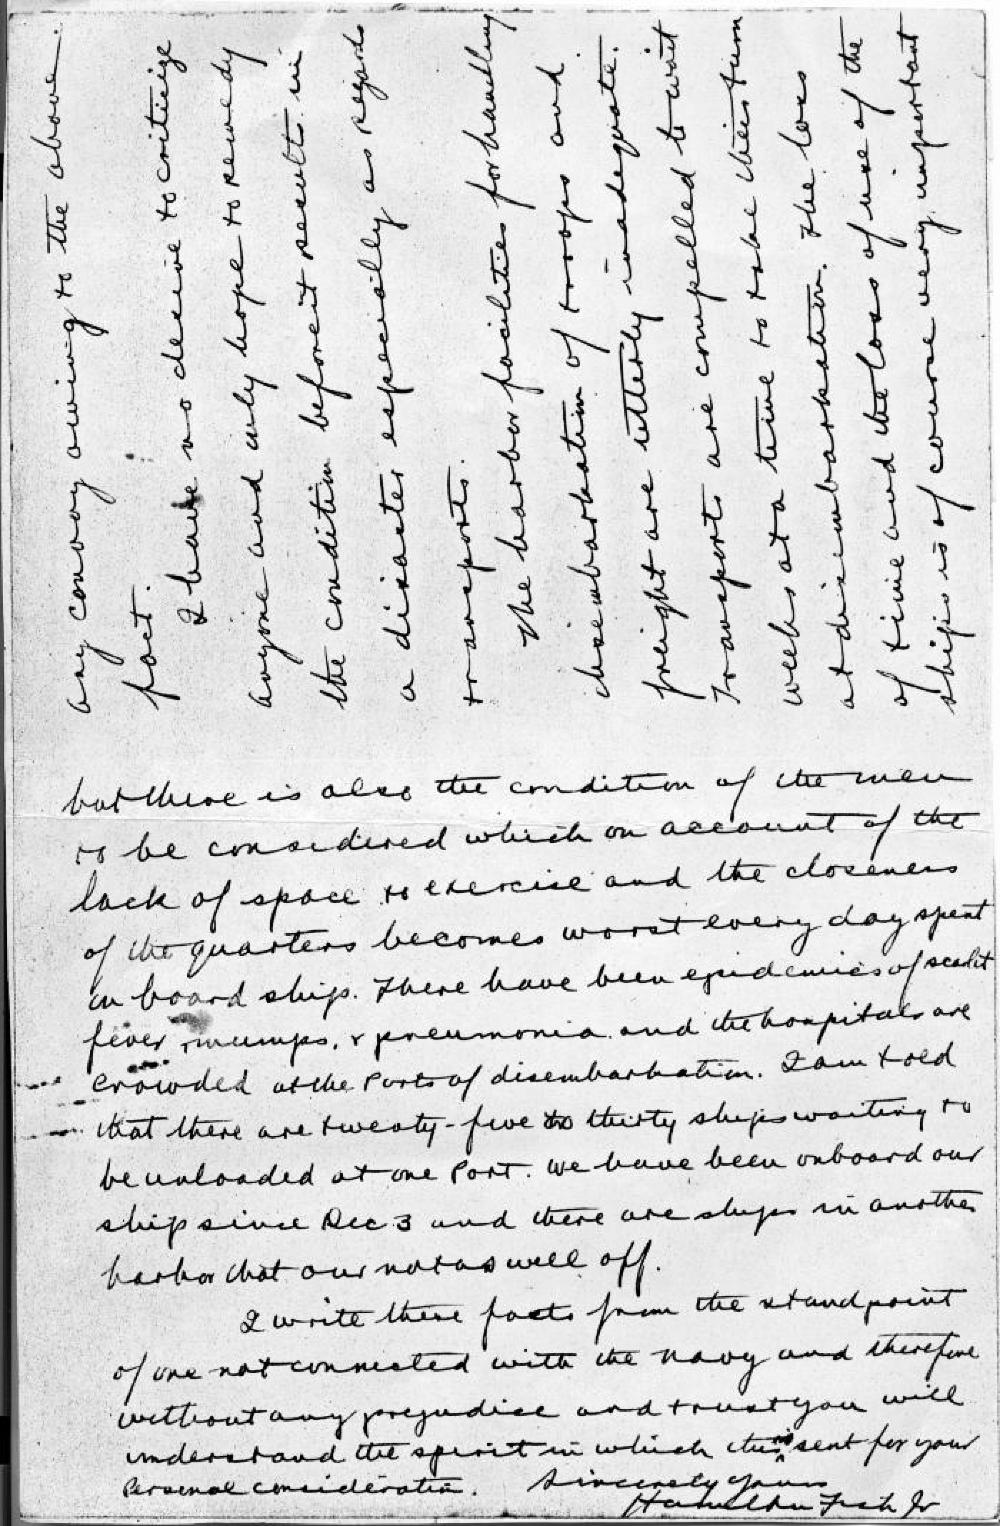 any convoy owing to the above
fact.
I have no desire to criticize
anyone and only hope to remedy
the condition before it results in
a disaster especially as regards
transports.
The harbor facilities for handling
disembarkation of troops and
freight are utterly inadequate.
Transports are compelled to wait
weeks at a time to take their turn
at disimbarkation. The loss
of time and the loss of use of the
ships is of course very important
but there is also the condition of the men
to be considered which on account of the
lack of space to exercise and the closeness
of the quarters becomes worst every day spent
on board ship. There have been epidemics of scarlet
fever, mumps, & pneumonia and the hospitals are
crowded at the Ports of disembarkation. I am told
that there are twenty-five to thirty ships waiting to
be unloaded at one Port. We have been onboard our
ship since Dec 3 and there are ships in another
harbor that our not as well off.
I write these facts from the standpoint
of one not connected with the navy and therefore
without any prejudice and trust you will
understand the spirit in which this is sent for your
Personal consideration. Sincerely yours
Hamilton Fish Jr